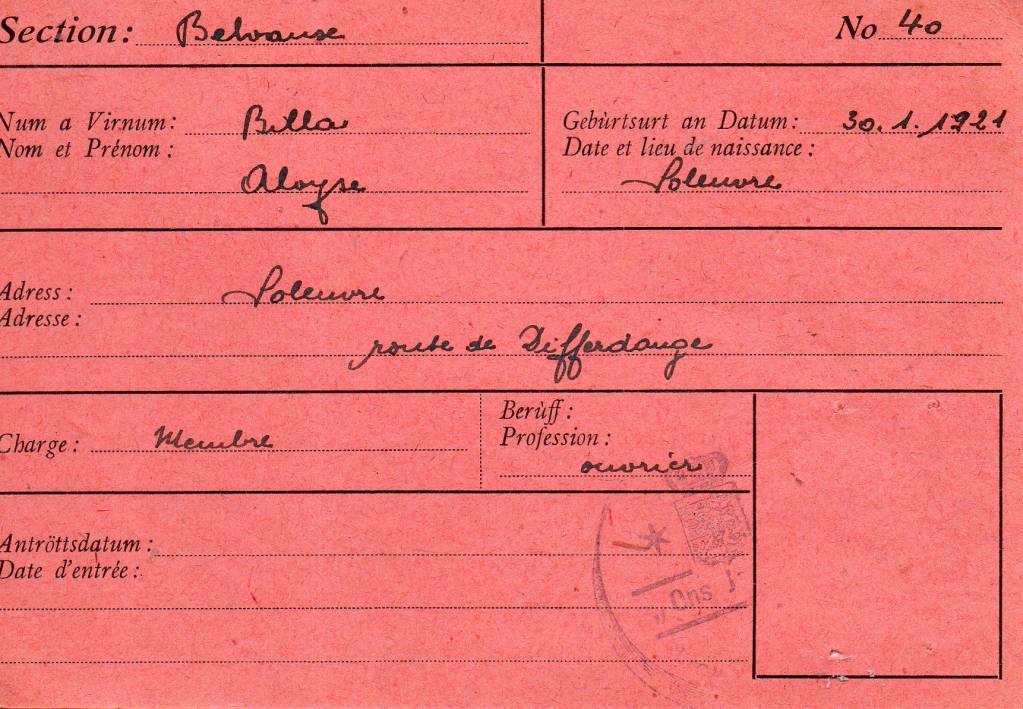 Section: Belvause No 40
Num a Virnum: Billa
Nom et Prénom:
Aloyse
Gebùrtsurt an Datum: 30.1.1921
Date et lieu de naissance:
Soleuvre
Adress: Soleuvre
Adresse:
route de Differdange
Charge: Membre
Berùff:
Profession:
ouvrier
Antröttsdatum:
Date d'entrée:
„Ons